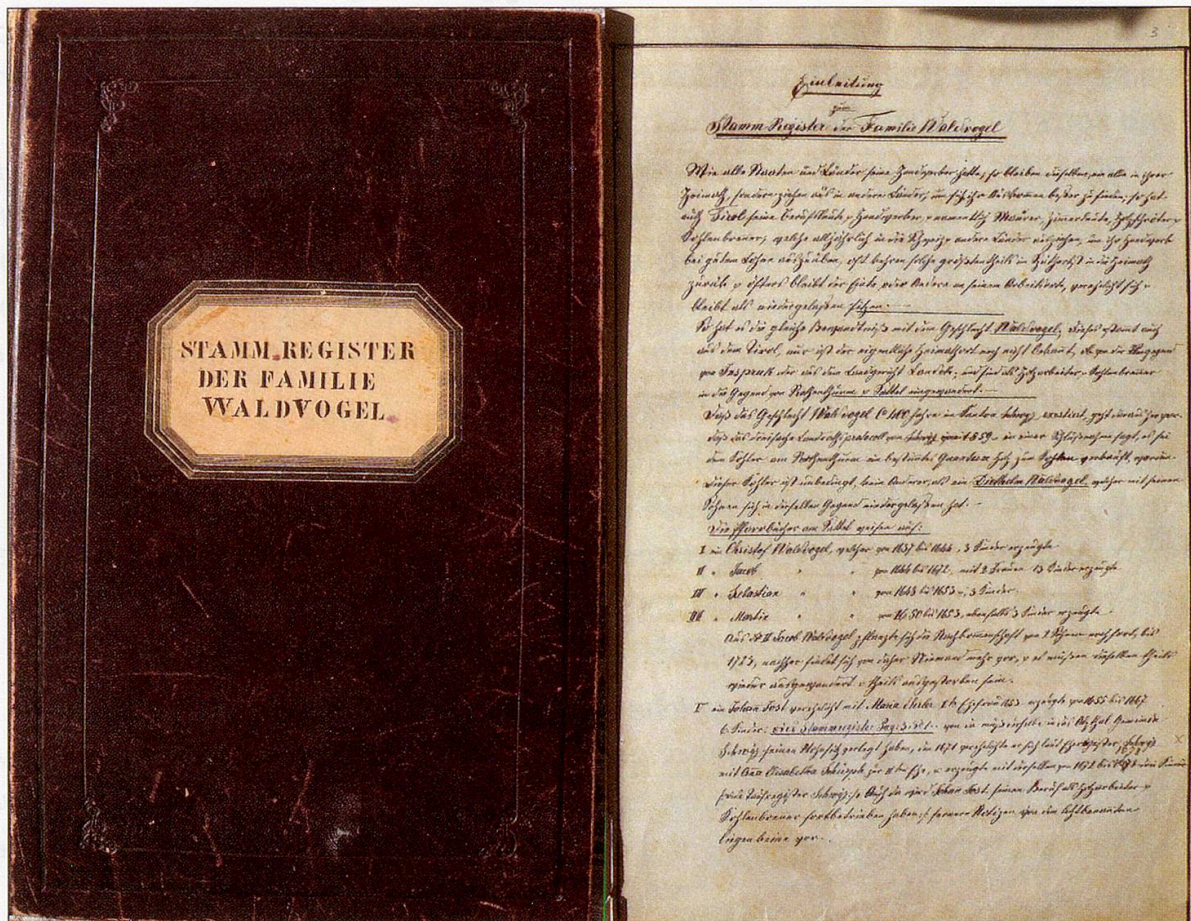 STAMM.REGISTER
DER FAMILIE
WALDVOGEL
3
Einleitung
zum
Stamm-Register der Familie Waldvogel
Wie alle Staaten und Länder seine Handwerker hatte, so bleiben dieselben, nie alle in ihrer
Heimath, sondern ziehen aus in andere Länder, um sich ihr Auskommen besser zu finden; so hat
auch Tirol seine Berufsleute, v Handwerker, v namentlich Maurer, Zimerleute, Holzschröter v
Kohlenbrener, welche alljährlich in die Schweiz v andere Länder ausziehen, um ihr Handwerk
bei gutem Lohne auszuüben, oft kehren solche größtentheils im Spätherbst in die Heimath
zurück v öfters bleibt der Eine, oder Andere an seinem Arbeitsorte, verehelicht sich v
bleibt als niedergelaßen sitzen.
So hat es die gleiche Bewandtniß mit dem Geschlecht Waldvogel, dieses stamt auch
aus dem Tirol, nur ist der eigentliche Heimathort noch nicht bekant, ob von der Umgegend
von Inspruk oder aus dem Landgericht Landek, und sind als Holzarbeiter v Kohlenbrener
in die Gegend von Rothenthurm v Sattel eingewandert.
Daß das Geschlecht Waldvogel 400 Jahre im Kanton Schwyz existirt, geht daraus hervor
daß das dreifache Landrathsprotocoll von Schwyz 1559. in einer Schlußnahme sagt, es sei
dem Köhler am Rothenthurm ein bestimtes Quantum Holz zum Kohlen verkauft worden.
Dieser Köhler ist unbedingt, kein Anderer, als ein Diethelm Waldvogel, welcher mit seinen
Söhnen sich in derselben Gegend niedergelaßen hat.
Die Pfarrbücher am Sattel weisen auf:
I ein Christof Waldvogel, welcher von 1637 bis 1644, 3 Kinder erzeugte
II " Jacob " " von 1644 bis 1672, mit 2 Frauen 13 Kinder erzeugte
III " Sebastian " " von 1648 bis 1653, 3 Kinder
IIII " Martin " " von 1650 bis 1653, ebenfalls 3 Kinder erzeugte
Aus II Jacob Waldvogel pflanzte sich die Nachkommenschaft von 2 Söhnen noch fort, bis
1723, nachher findet sich von daher Niemand mehr vor, v es müßen dieselben theils
wieder ausgewandert v theils ausgestorben sein.
V ein Johann Jost verehelicht mit Maria erzeugte von 1655 bis 1667
6 Kinder: vide Stammregister Pag: von da muß derselbe in das Gemeinde
Schwyz seinen Wohnsitz gelegt haben, den 1671 verehelichte er sich laut Schwyz
mit Ana Elisabetha Schilpf zur Ehe, v erzeugte mit derselben von 1672 bis 1678
vide Taufregister Schwyz Auch da wird Johan Jost seinen Beruf als Holzarbeiter v
Kohlenbrener fortbetrieben haben; fernere Notizen von dem
liegen keine vor.